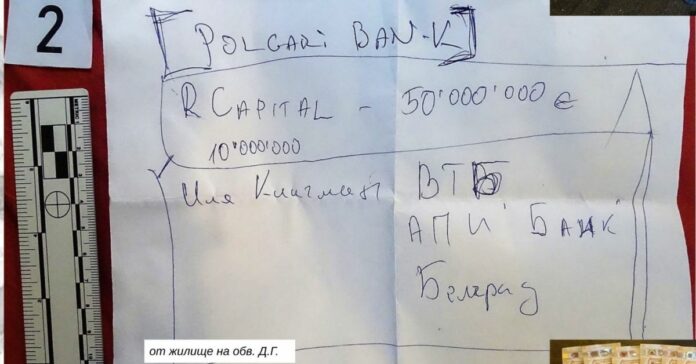 2
[POLGARI BAN-K]
R CAPITAL - 50'000'000 €
10'000'000
Иля Клигман ВТБ
АПИ БАНК
Белград
от жилище на обв. Д.Г.